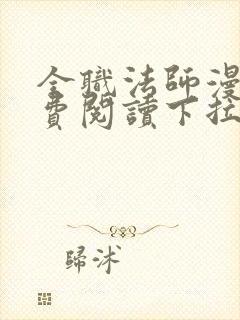 全職法師漫
費閱讀下拉
歸沭